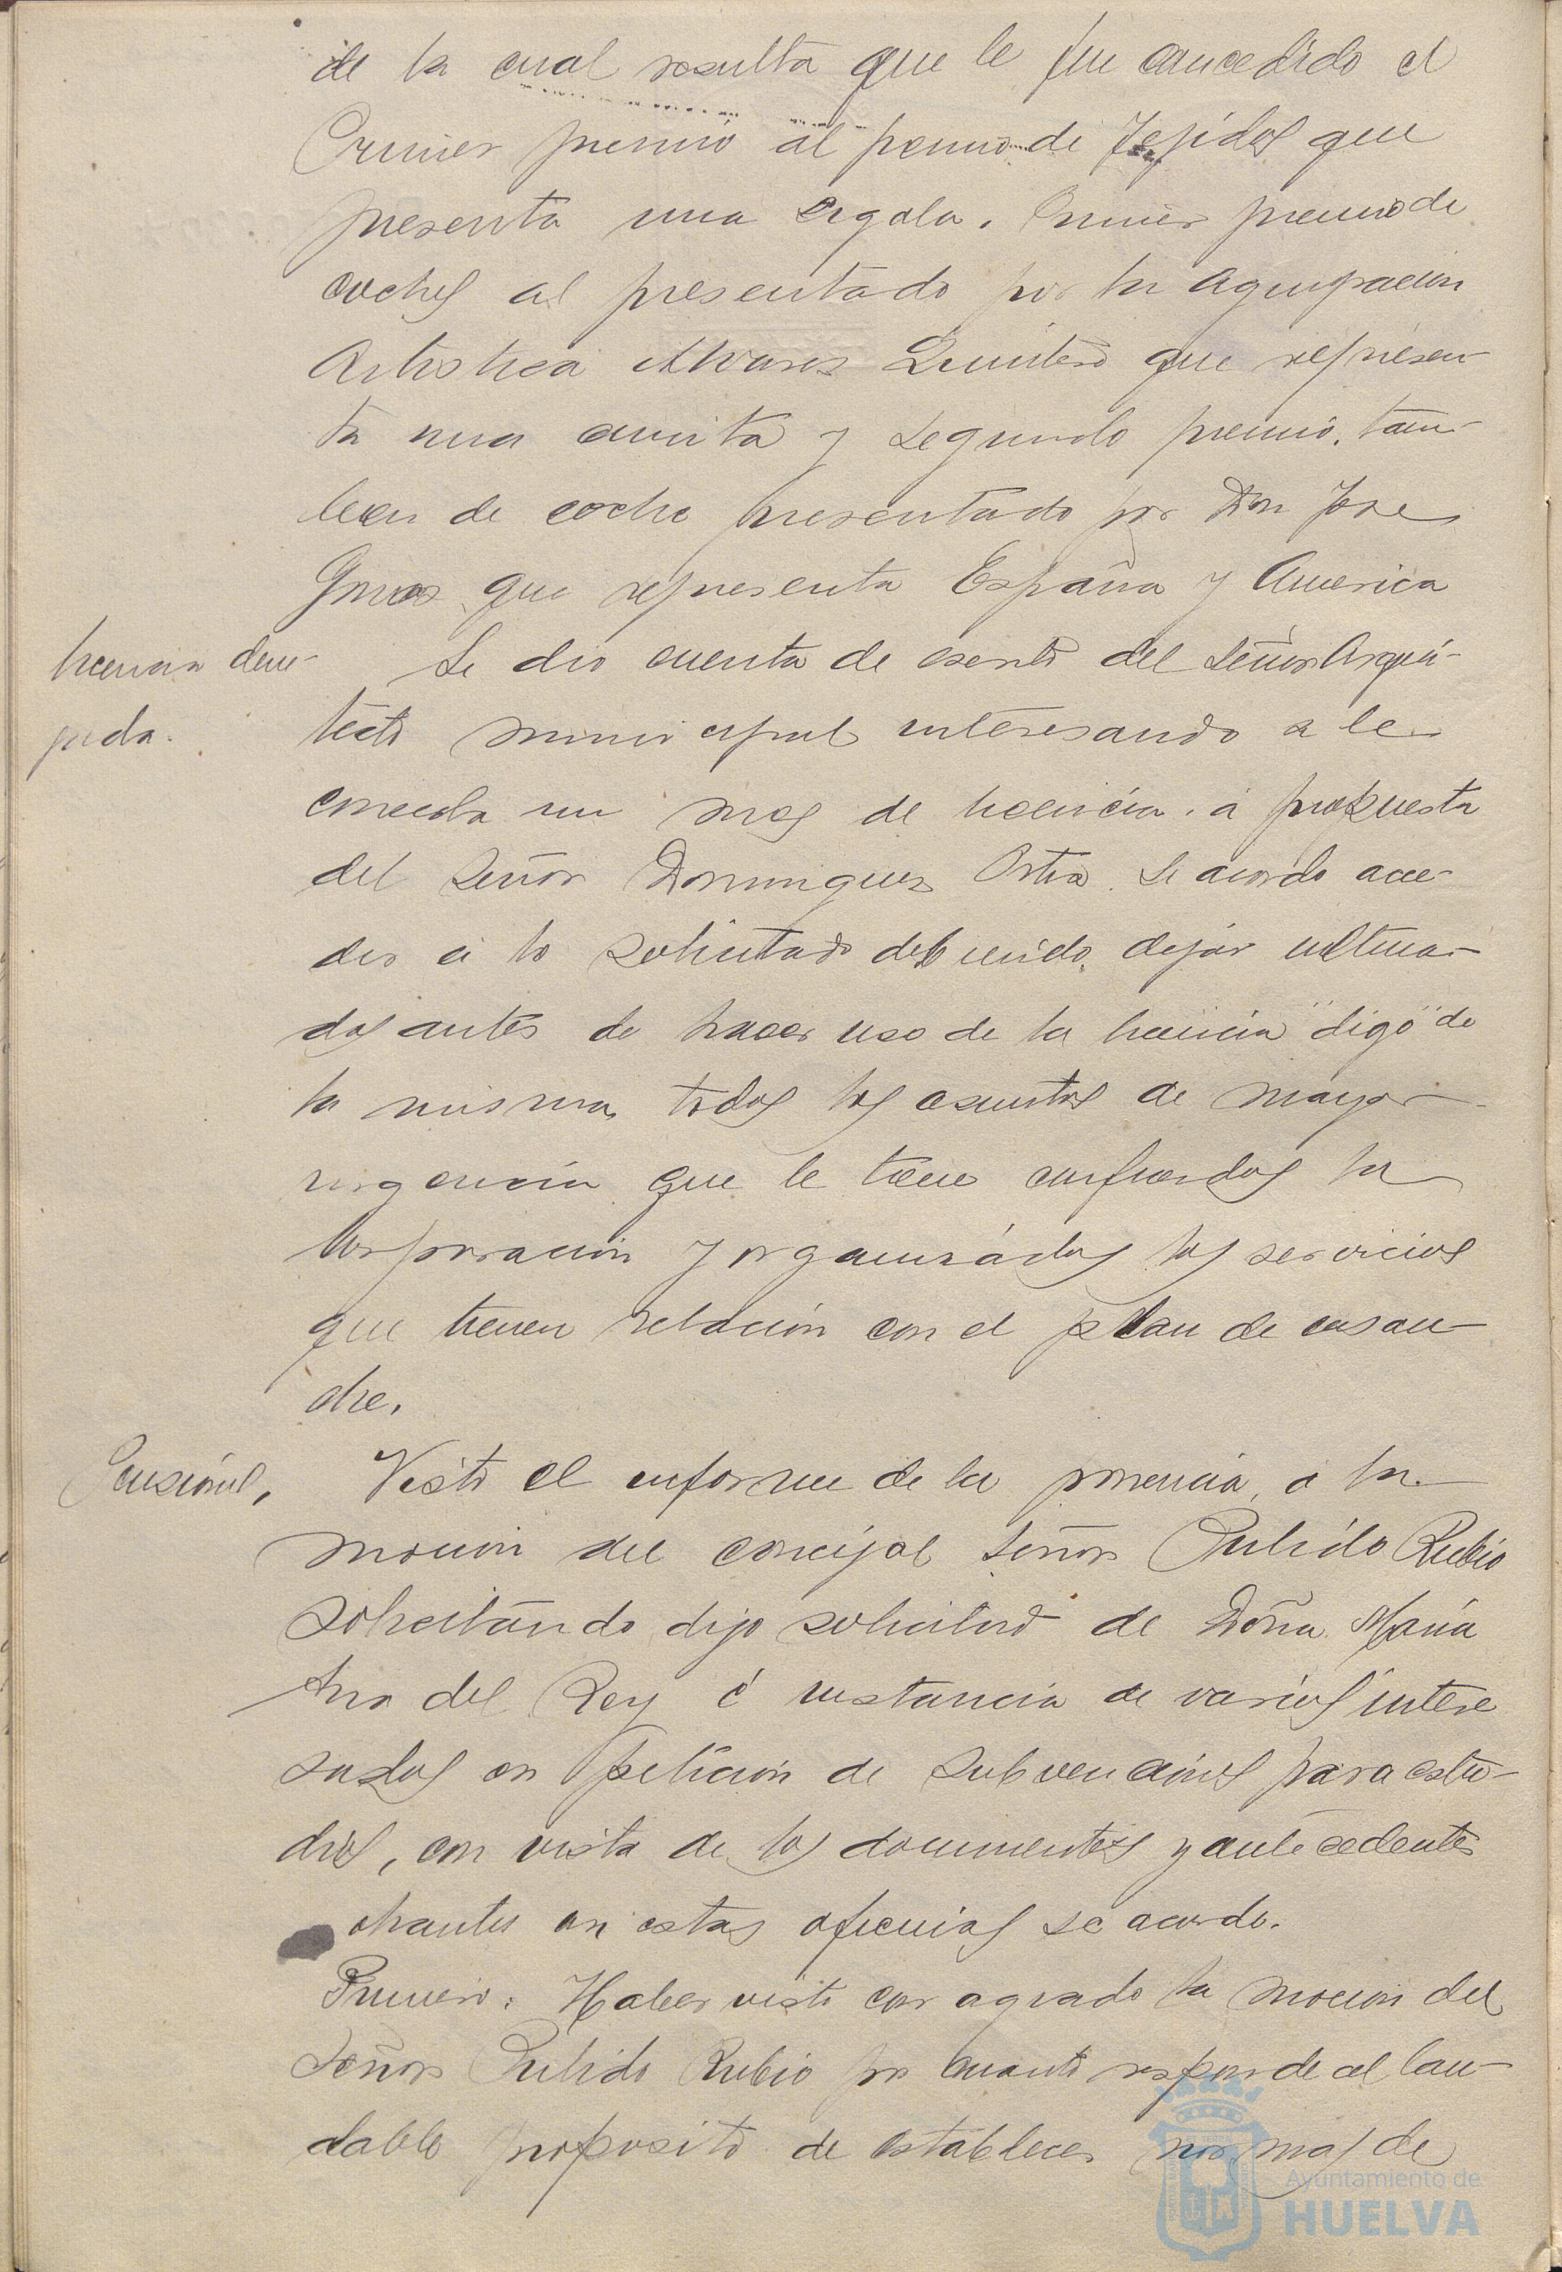 de la cual resulta que le fue concedido el
Primer premio al premio de Tejidos que
presenta una regala. Primer premio de
coches al presentado por la Agrupación
Artistica Alvarez Quintero que represen-
ta una cunita y segundo premio, tam-
bien de coche presentado por Don Jose
que representa España y America
licencia dene-
gada.
Se dio cuenta de escrito del Señor Arqui-
tecto municipal interesando se le
conceda un mes de licencia. á propuesta
del Señor Dominguez Ortia se acordo acce-
der á lo solicitado debiendo dejar ultima-
dos antes de hacer uso de la licencia "digo" de
la misma todos los asuntos de mayor
urgencia que le tiene confiados la
Corporación y organizádos los servicios
que tienen relación con el plan de ensan-
che.
Pensiónes,
Visto el informe de la ponencia, á la
mocion del concejal Señor Pulido Rubio
solicitando digo solicitud de Doña María
Ana del Rey é instancia de varios intere
sados en petición de subvenciónes para estu-
dios, con vista de los documentos y antecedentes
obrantes en estas oficinas se acordo.
Primero: Haber visto con agrado la mocion del
Señor Pulido Rubio por cuanto responde al lau-
dable proposito de establecer normas de
Ayuntamiento de
HUELVA